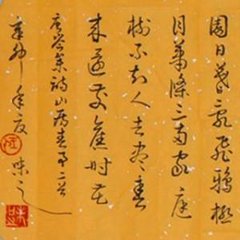 園日暮亂飛鴉極
目蕭條三兩家庭
樹不知人去盡春
来還發舊時花
唐岑參詩山房春事二首
申年夏味之